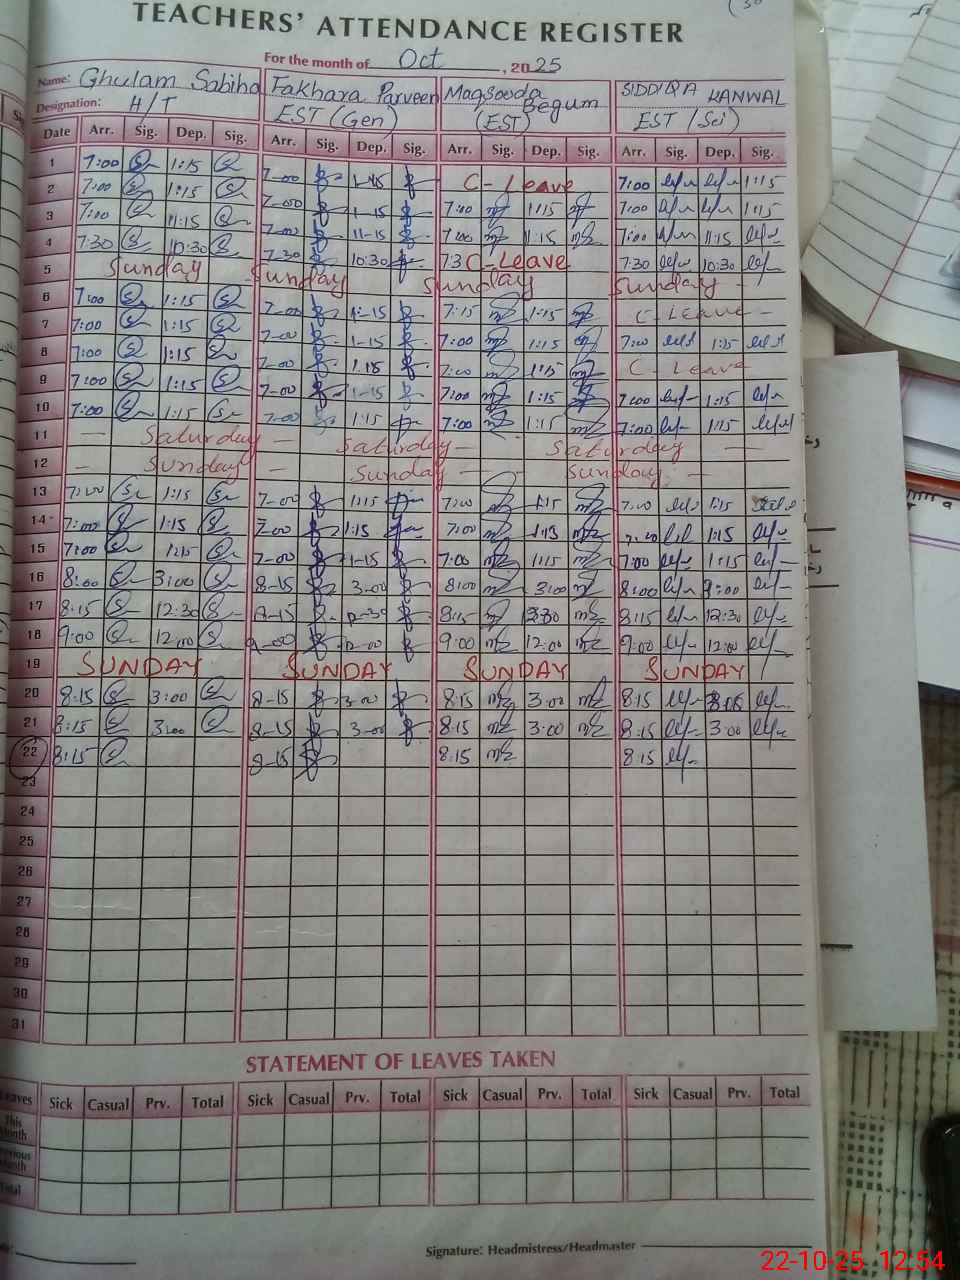 TEACHERS' ATTENDANCE REGISTER
For the month of Oct, 2025
Name: Ghulam Sabiha Fakhara Parveen Maqsooda Begum SIDDIQA KANWAL
Designation: H/T EST (Gen) (EST) EST (Sci)
Date Arr. Sig. Dep. Sig. Arr. Sig. Dep. Sig. Arr. Sig. Dep. Sig. Arr. Sig. Dep. Sig.
1 7:00 1:15 7-00 C-Leave 7:00 1:15
2 7:00 1:15 7-00 1-15 7:00 1:15 7:00 1:15
3 7:00 11:15 7-00 11-15 7:00 1:15 7:00 11:15
4 7:30 10:30 7-30 10:30 73 C-Leave 7:30 10:30
5 Sunday Sunday Sunday Sunday -
6 7:00 1:15 7-00 1-15 7:15 1:15 C-Leave -
7 7:00 1:15 7-00 1-15 7:00 1:15 7:00 1:15
8 7:00 1:15 7-00 1:15 7:00 1:15 C-Leave
9 7:00 1:15 7-00 1-15 7:00 1:15 7:00 1:15
10 7:00 1:15 7-00 1:15 7:00 1:15 7:00 1:15
11 — Saturday — Saturday — Saturday —
12 - Sunday - Sunday — Sunday. —
13 7:00 1:15 7-00 1:15 7:00 1:15 7:00 1:15
14 7:00 1:15 7-00 1:15 7:00 1:15 1:15
15 7:00 1:15 7-00 1-15 7:00 1:15 7:00 1:15
16 8:00 3:00 8-15 3-00 8:00 3:00 8:00
17 8:15 12:30 8:15 8:15 12:30
18 9:00 12:00 12-00 9:00 12:00 9:00 12:00
19 SUNDAY SUNDAY SUNDAY SUNDAY
20 8:15 3:00 8-15 3-00 8:15 3:00 8:15
21 8:15 3:00 8-15 3-00 8:15 3:00 8:15 3:00
22 8:15 8-15 8:15 8:15
23
24
25
26
27
28
29
30
31
STATEMENT OF LEAVES TAKEN
Leaves Sick Casual Prv. Total Sick Casual Prv. Total Sick Casual Prv. Total Sick Casual Prv. Total
This Month
Previous Month
Total
Signature: Headmistress/Headmaster
22-10-25 12:54